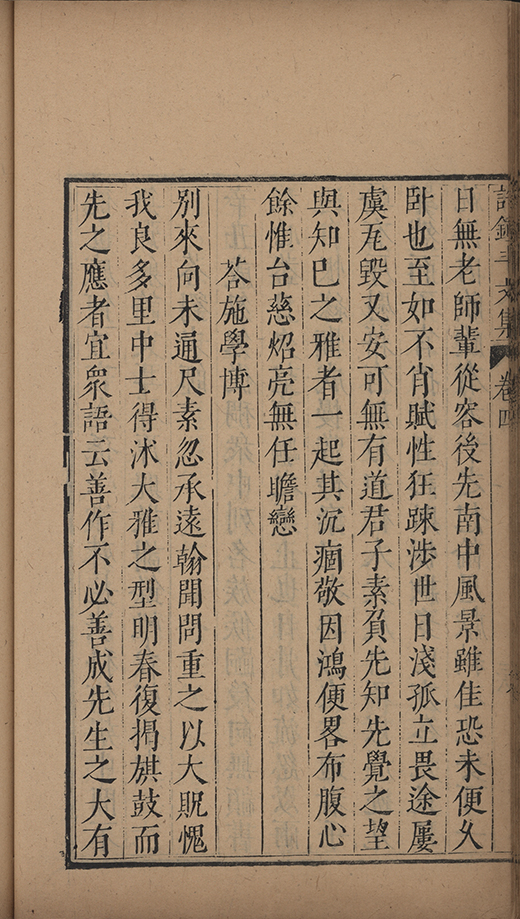 文集 卷四
日無老師輩從容後先南中風景雖佳恐未便久
卧也至如不肖賦性狂踈涉世日淺孤立畏途屢
虞㐳毀又安可無有道君子素負先知先覺之望
與知巳之雅者一起其沉痼敬因鴻便畧布腹心
餘惟台慈炤亮無任瞻戀
荅施學博
別來向未通尺素忽承遠翰聞問重之以大貺愧
我良多里中士得沐大雅之型明春復揭旗鼓而
先之應者宜衆語云善作不必善成先生之大有